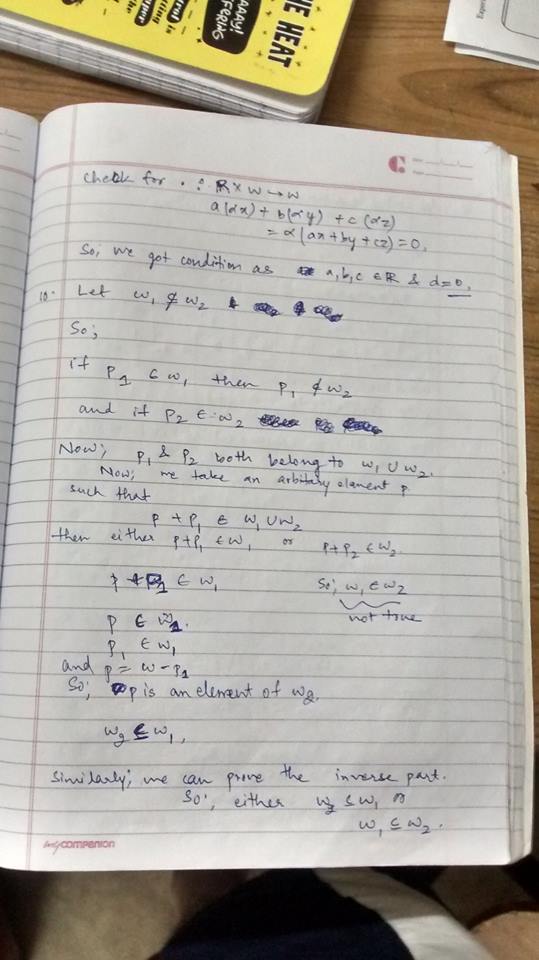 HE HEAT
AAAAY!
FFERING
check for · : R × W → W
a(αx) + b(αy) + c(αz)
= α(ax + by + cz) = 0.
So; we got condition as a, b, c ∈ R & d = 0.
10. Let w₁ ⊄ w₂
So;
if P₁ ∈ w₁ then P₁ ∉ w₂
and if P₂ ∈ w₂
Now; P₁ & P₂ both belong to w₁ ∪ w₂.
Now; we take an arbitary element p
such that
p + p₁ ∈ w₁ ∪ w₂
then either p + p₁ ∈ w₁ or p + p₂ ∈ w₂
p + p₁ ∈ w₁ So; w₁ ∈ w₂
not true
p ∈ w₁.
p₁ ∈ w₁
and p = w - p₁
So; p is an element of w₂.
w₂ ⊆ w₁,
Similarly; we can prove the inverse part.
So; either w₂ ⊆ w₁ or
w₁ ⊆ w₂.
mycompanion